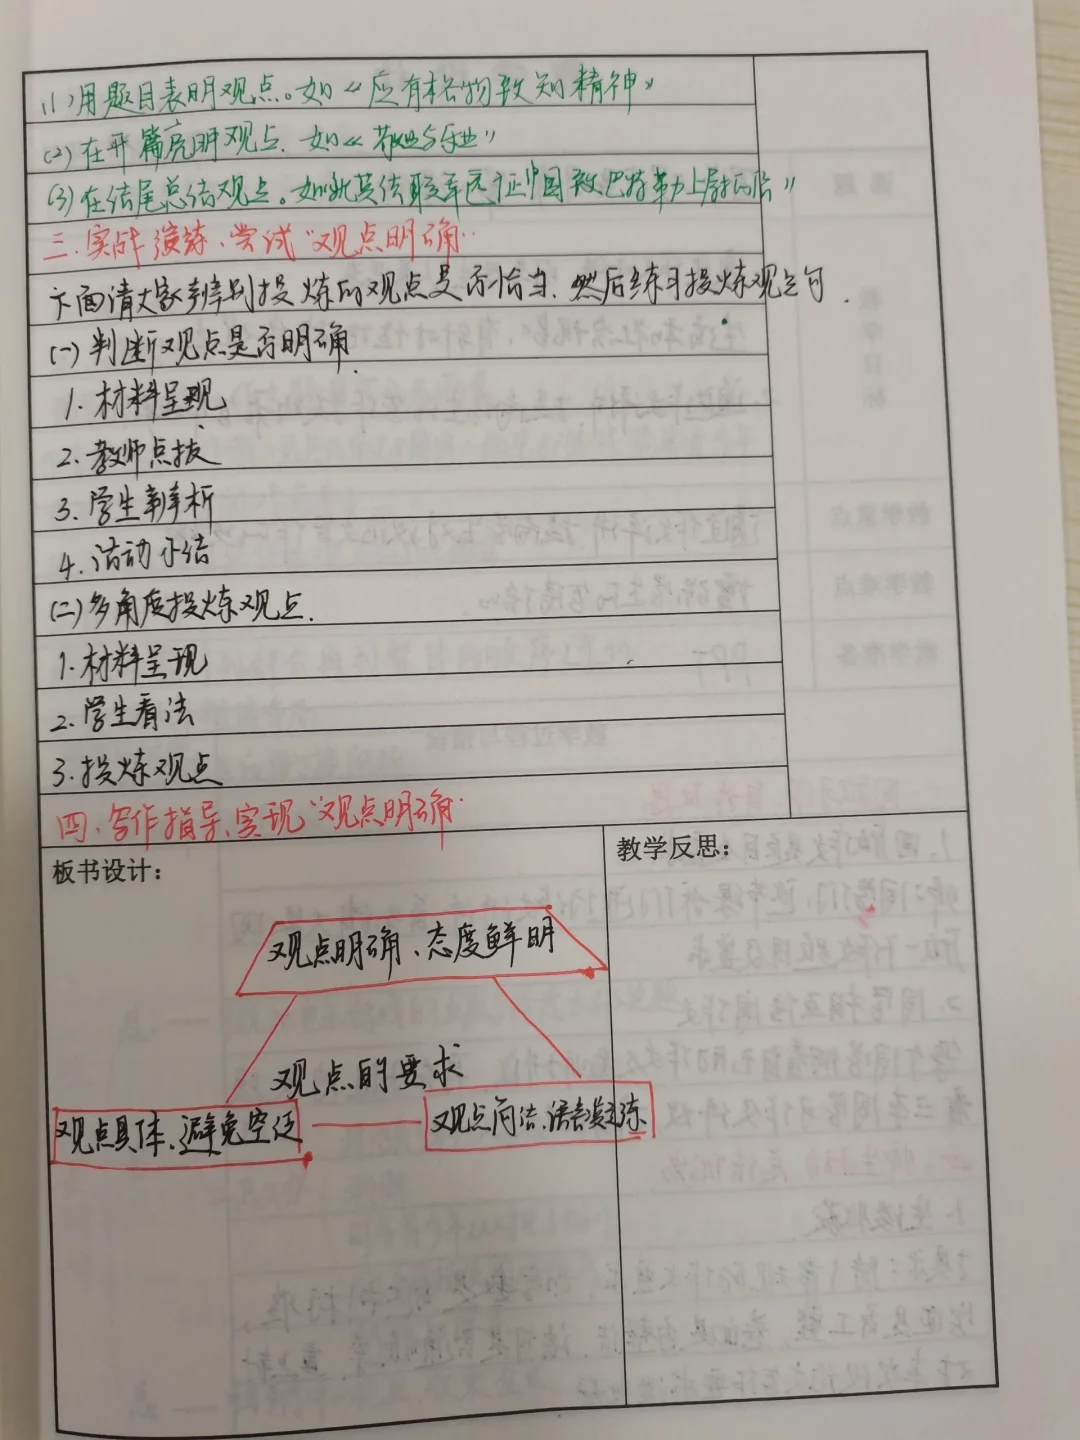 (1)用题目表明观点。如《应有格物致知精神》
(2)在开篇亮明观点.如《敬业与乐业》
(3)在结尾总结观点。如《就英法联军远征中国致巴特勒上尉的信》
三.实战演练、尝试“观点明确”
下面请大家辨别提炼的观点是否恰当.然后练习提炼观点句.
(一)判断观点是否明确.
1.材料呈现
2.教师点拔
3.学生辨析
4.活动小结
(二)多角度提炼观点.
1.材料呈现
2.学生看法
3.提炼观点
四.写作指导、实现“观点明确”
板书设计:
教学反思:
观点明确、态度鲜明
观点的要求
观点具体、避免空泛
观点简洁、语言凝练